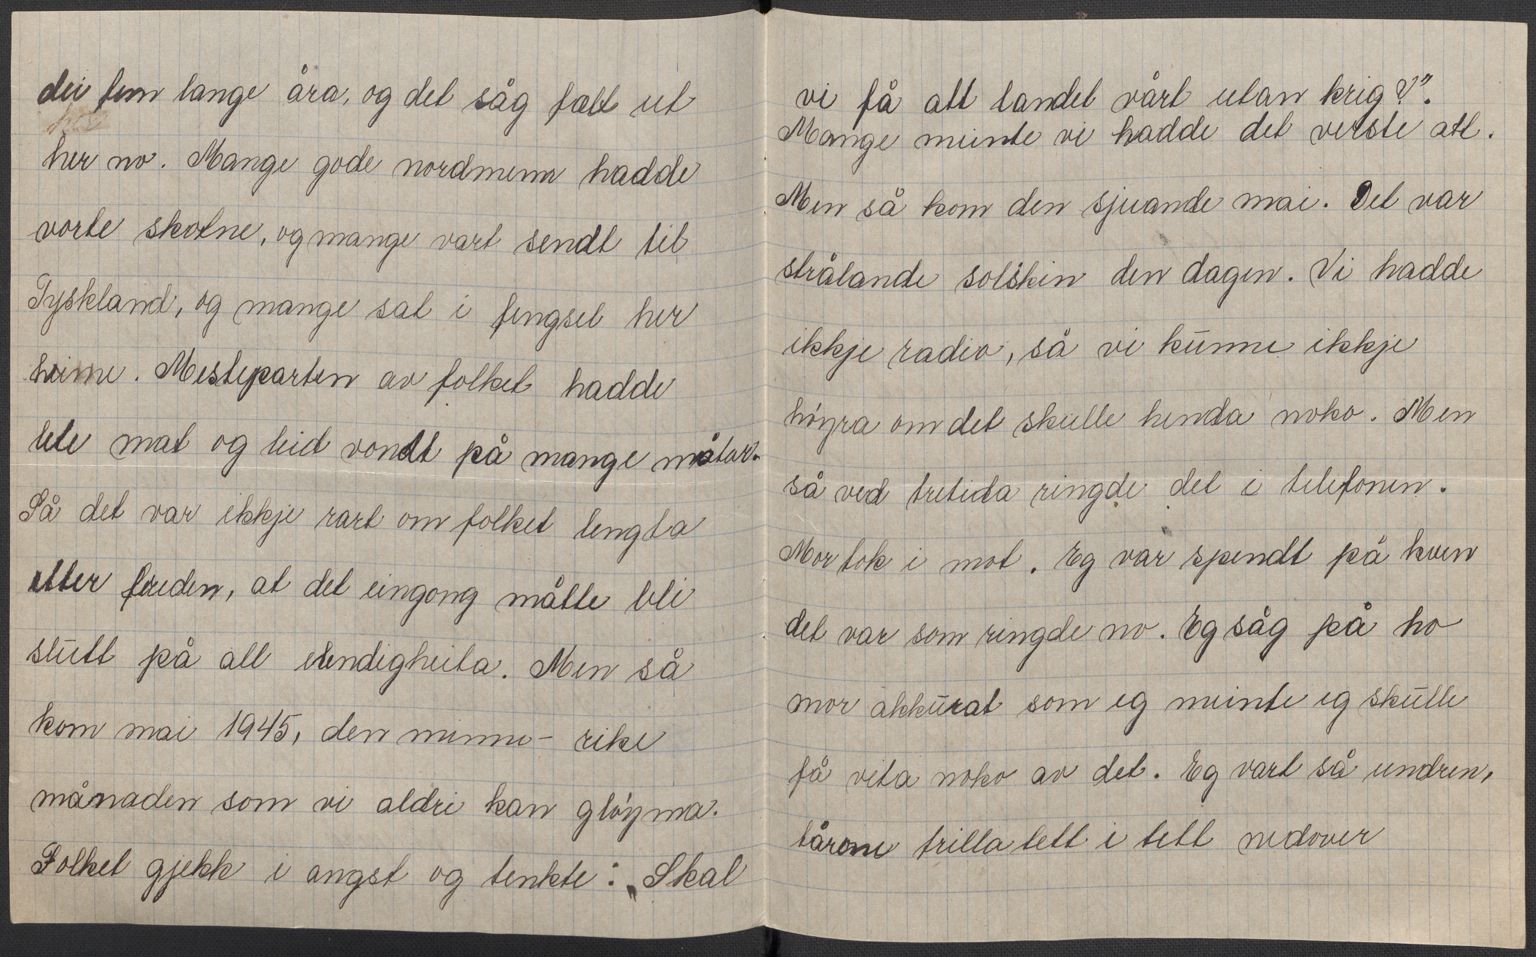 dei fem lange åra, og det såg fælt ut
her no. Mange gode nordmenn hadde
vorte skotne, og mange vart sendt til
Tyskland, og mange sat i fengsel her
heime. Mesteparten av folket hadde
lite mat og leid vondt på mange måtar.
Så det var ikkje rart om folket lengta
etter freden, at det eingong måtte bli
slutt på all elendigheita. Men så
kom mai 1945, den minne-rike
månaden som vi aldri kan gløyma.
Folket gjekk i angst og tenkte: „Skal
vi få att landet vårt utan krig?".
Mange meinte vi hadde det verste att.
Men så kom den sjuande mai. Det var
strålande solskin den dagen. Vi hadde
ikkje radio, så vi kunne ikkje
høyra om det skulle henda noko. Men
så ved tretida ringde det i telefonen.
Mor tok i mot. Eg var spendt på kven
det var som ringde no. Eg såg på ho
mor akkurat som eg meinte eg skulle
få vita noko av det. Eg vart så undren,
tårone trilla tett i tett nedover